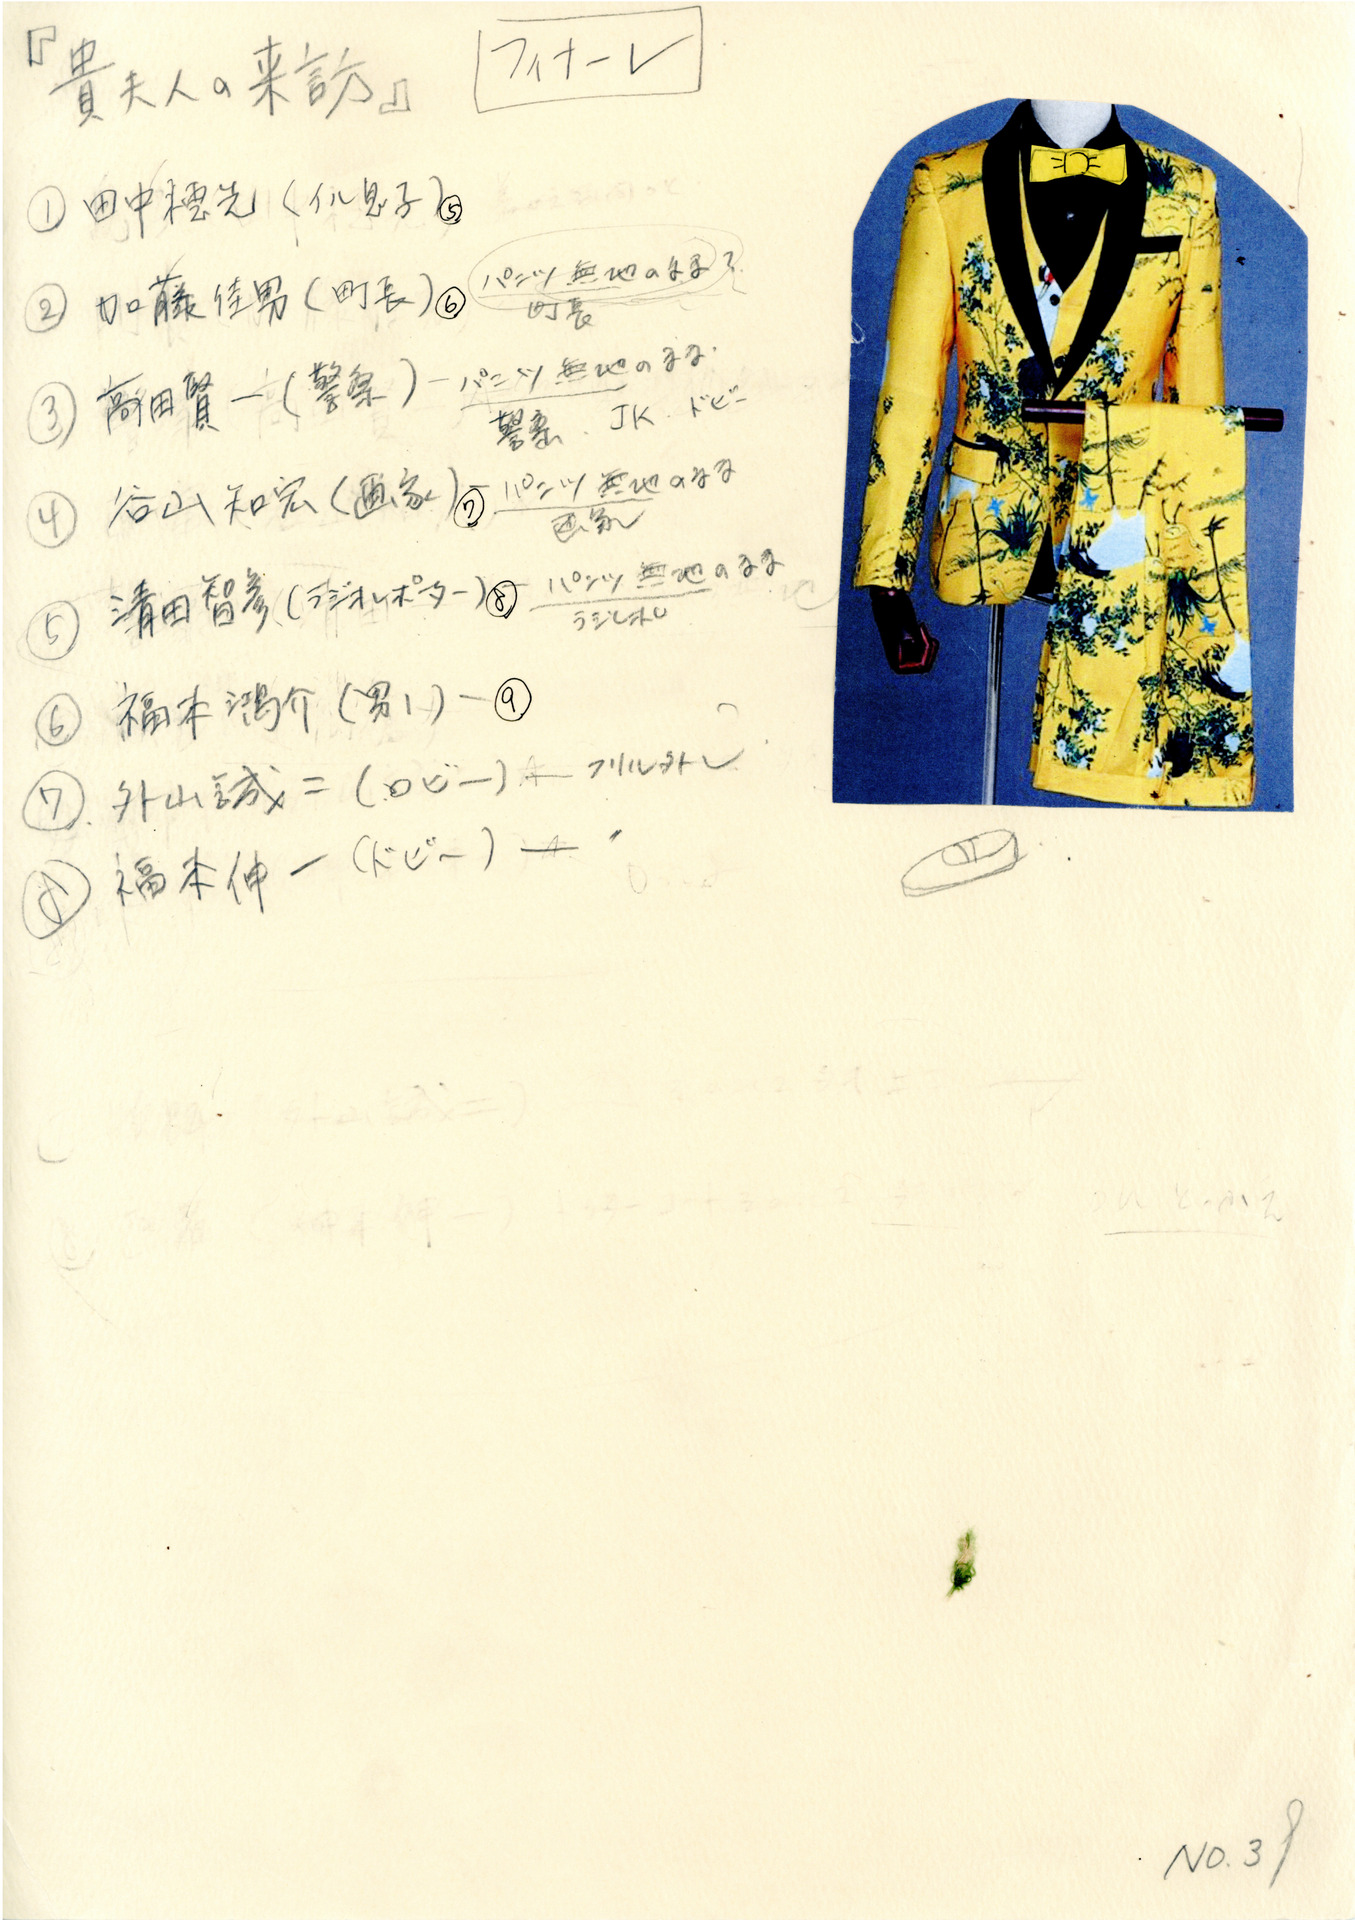 『貴夫人の来訪』 フィナーレ
① 田中穂先（イル息子）⑤
② 加藤佳男（町長）⑥ パンツ無地のまま？
町長
③ 高田賢一（警察）ー パンツ無地のまま.
警察. JK. ドビー
④ 谷山知宏（画家）⑦ パンツ無地のまま
画家
⑤ 清田智彦（ラジオレポーター）⑧ パンツ無地のまま
ラジレポ
⑥ 福本鴻介（男1）ー⑨
⑦ 外山誠二（ロビー） フリル外し
⑧ 福本伸一（ドビー） 〃
NO.39